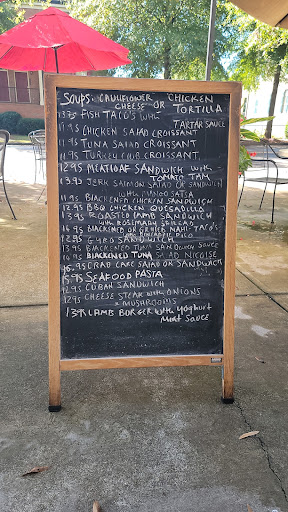 SOUPS: CAULIFLOWER CHICKEN
CHEESE OR TORTILLA
13.95 FISH TACO'S WITH
TARTAR SAUCE
11.95 CHICKEN SALAD CROISSANT
11.95 TUNA SALAD CROISSANT
11.95 TURKEY CLUB CROISSANT
12.95 MEATLOAF SANDWICH with
TOMATO JAM
13.95 JERK SALMON SALAD OR SANDWICH
WITH MANGO SALSA
11.95 BLACKENED CHICKEN SANDWICH
12.95 BBQ CHICKEN QUESADILLA
13.95 ROASTED LAMB SANDWICH
WITH ROSEMARY
14.95 BLACKENED OR GRILLED MAHI-TACO'S
PINEAPPLE PICO
12.95 GYRO SANDWICH
13.95 BLACKENED TUNA SANDWICH SAUCE
14.95 BLACKENED TUNA SALAD NICOISE
15.95 CRAB CAKE SALAD OR SANDWICH
15.95 SEAFOOD PASTA
12.95 CUBAN SANDWICH
12.95 CHEESE STEAK with ONIONS
& MUSHROOMS
13.95 LAMB BURGER with YOGHURT
MINT SAUCE